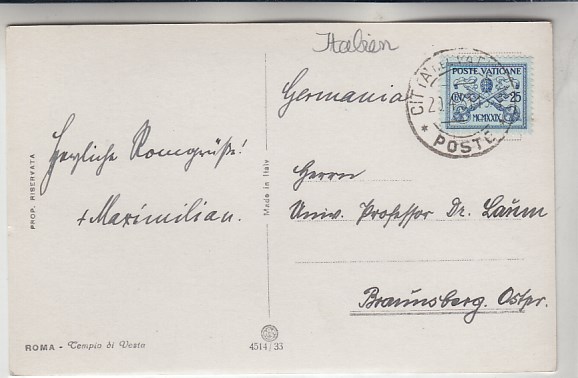 Italien
Germania
CITTA DEL VATICANO
POSTE
POSTE VATICANE
25
MCMXXIX
Herzliche Romgrüße!
+Maximilian.
Herrn
Univ. Professor Dr. Laum
Braunsberg. Ostpr.
PROP. RISERVATA
Made in Italy
ROMA - Tempio di Vesta
4514/33